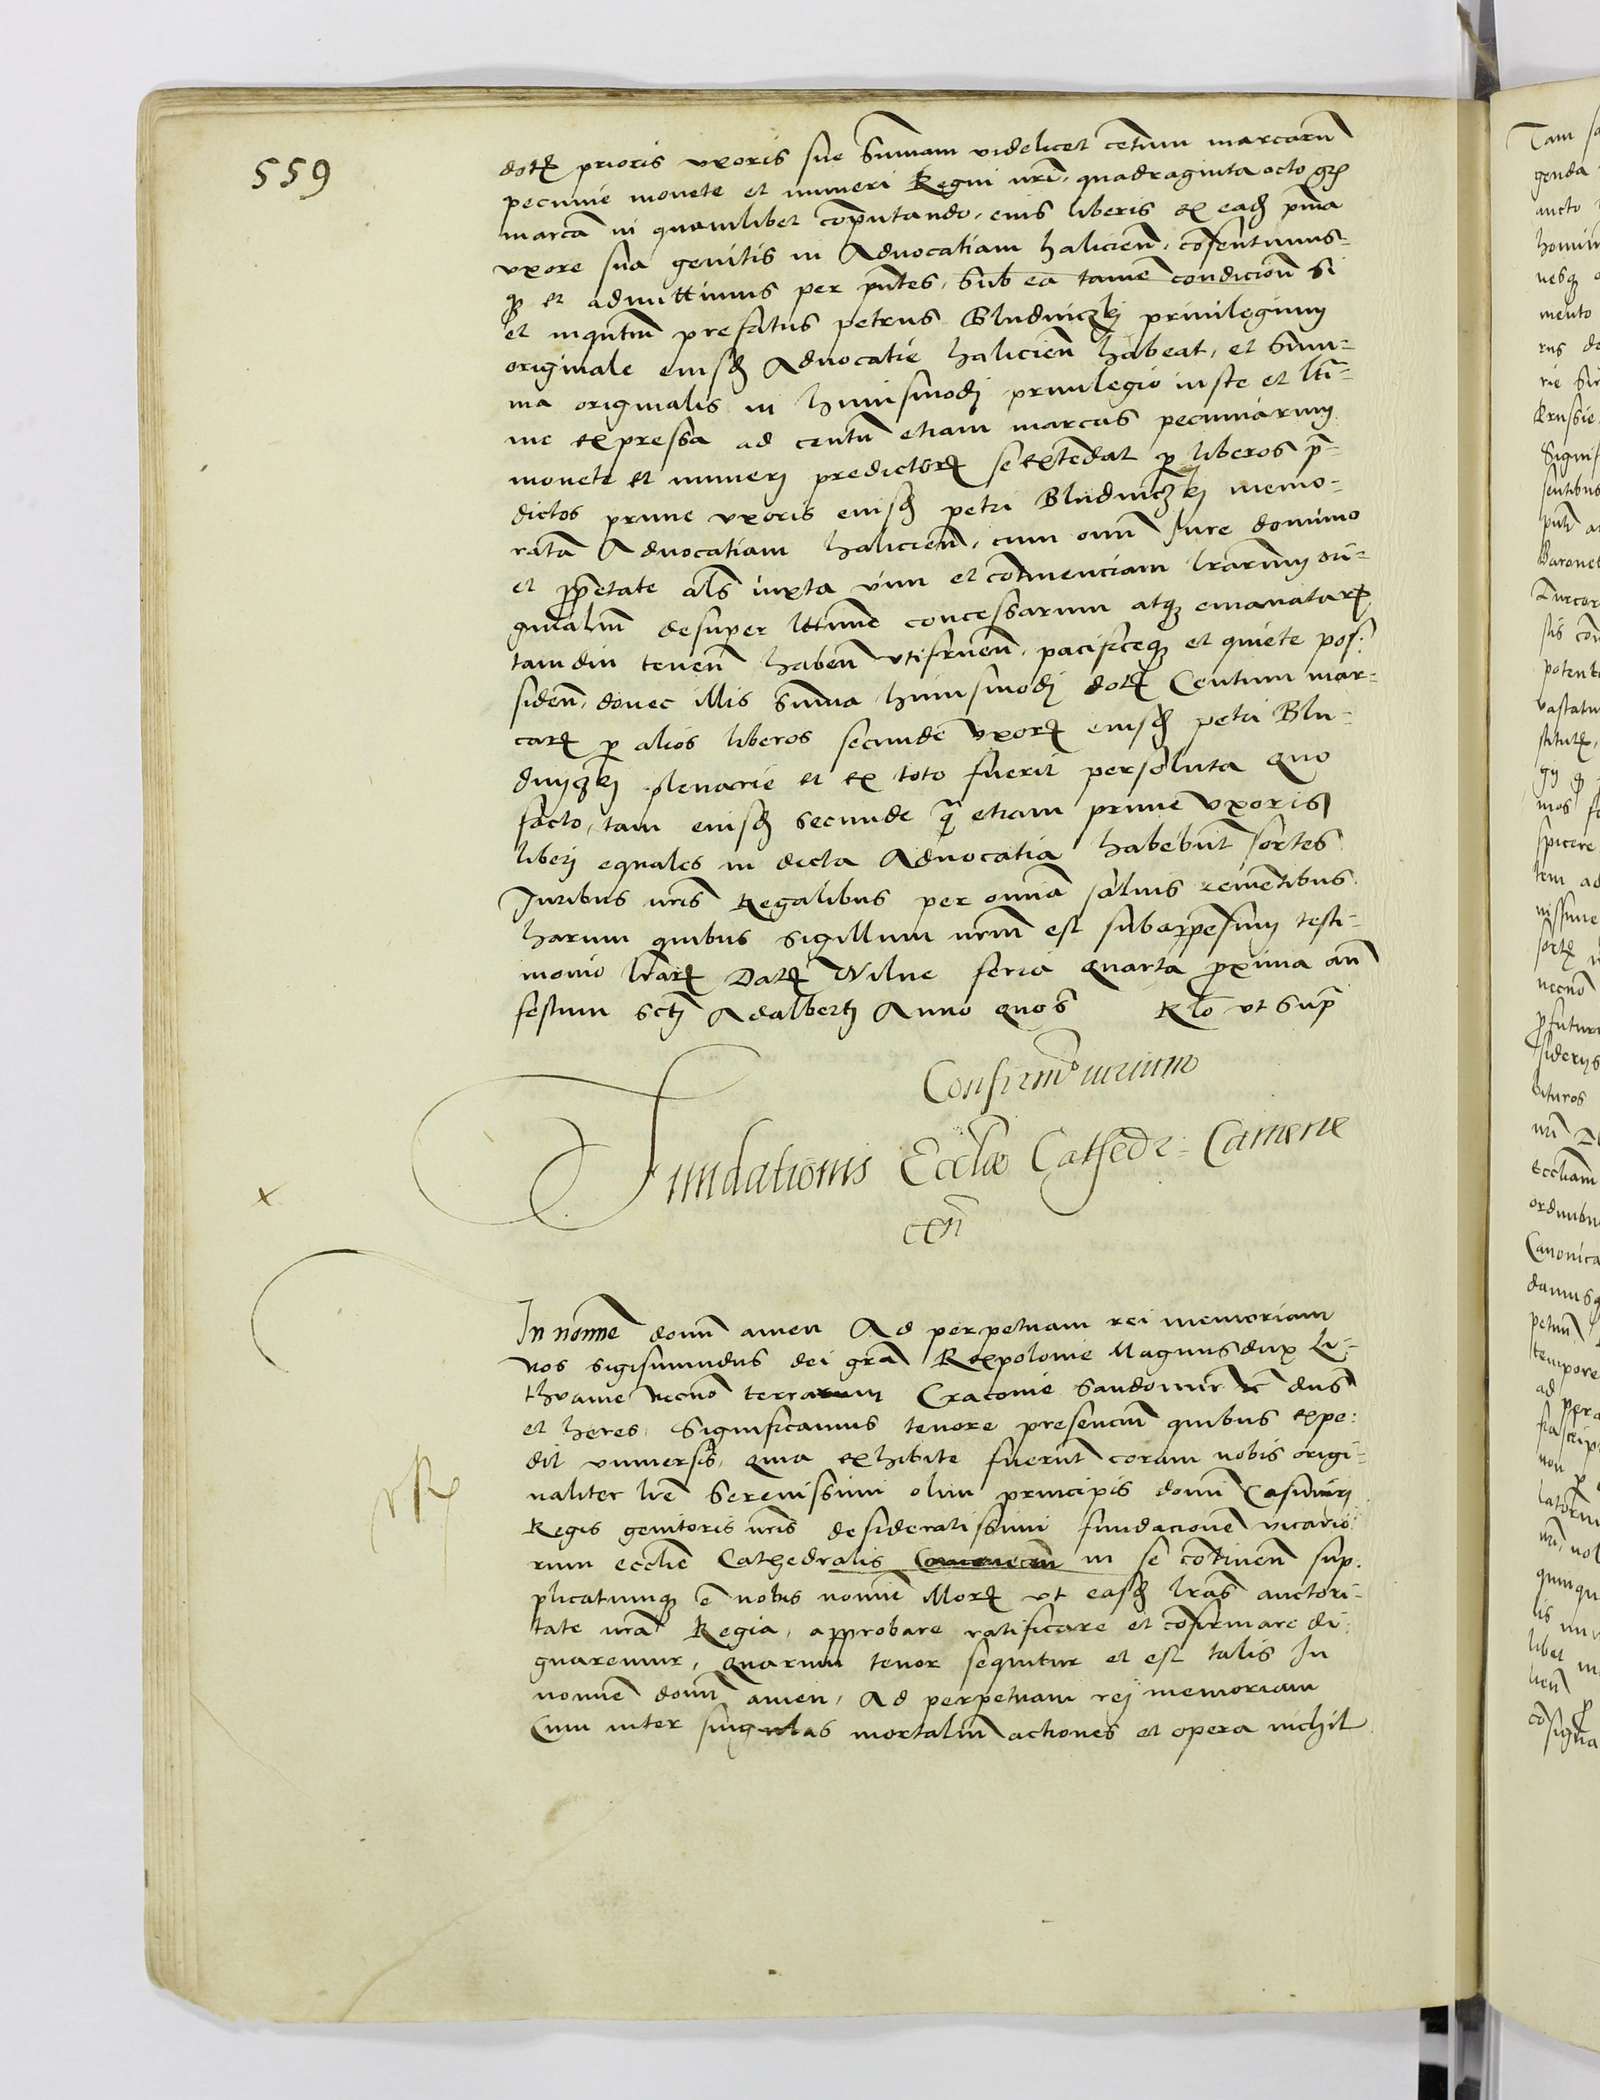 559
dotꝝ prioris vxoris sue Sum̄am videlicet centum marcarū
pecunie monete et numeri Regni nrī, quadraginta octo grꝭ
marcā in quamlibet computando, eius liberis ex eadꝫ pm̄a
vxore sua genitis in Advocatiam halicien̄, consentimus-
qꝫ et admittimus per pn̄tes, Sub ea tamē condicion̄ Si
et inqn̄tum prefatus petrus Bludniczkj priuilegium
originale eiusdꝫ Advocatie halicien̄ habeat, et Sum-
ma originalis in huiusmodj priuilegio iuste et ltī-
me expressa ad centū etiam marcas pecuniarum
monete et numerj predictorꝝ se extēdat ꝑ liberos p̄-
dictos prime vxoris eiusdꝫ petri Bludniczkj memo-
ratā Advocatiam halicien̄, cum omī Iure dominio
et ꝓprietate als̄ iuxta vim et cōtinenciam lrārum ori-
ginaliū desuper lttīme concessarum atqꝫ emanatarꝝ
tam diu tenen̄ haben̄ vtifruen̄, pacificeqꝫ et quiete pos-
siden̄, donec illis Sum̄a huiusmodj dotꝝ Centum mar-
carꝝ ꝑ alios liberos secunde vxorꝝ eiusdꝫ petri Blu-
dnyczkj plenarie et ex toto fuerit persoluta Quo
facto, tam eiusdꝫ secunde q̄ etiam prime vxoris
liberj equales in dicta Advocatia habebūt sortes
Iuribus nrīs Regalibus per om̄ia saluis remanētibus
harum quibus Sigillum nrm̄ est subappēsum testi-
monio lrārꝝ Datꝝ Wilne feria quarta proxima an̄
festum Sctj Adalbertj Anno quo S Rlō vt Supra
Confirmᵒ iurium
Fundationis Ecclīæ Cathedr: Camene
cen̄
In nomīe domī amen Ad perpetuam rei memoriam
Nos Sigismundus dei grā Rex polonie Magnus dux Li-
thvanie necnō terrarum Cracouie Sandomir̄ ec̄ dn̄s
et heres, Significamus tenore presenciū quibus expe-
dit vniuersis, Quia exhibite fuerūt coram nobis origi-
naliter lrē Serenissimi olim principis domī Casimirj
Regis genitoris nrīs desideratissimi fundacionē vicario-
rum ecclīe Cathedralis in se cōtinen̄ sup-
plicatumqꝫ ē nobis nomīe illorꝝ vt easdꝫ lrās auctori-
tate nrā Regia, approbare ratificare et cōfirmare di-
gnaremur, Quarum tenor sequitur et est talis In
nomīe domī amen, Ad perpetuam rej memoriam
Cum inter singulas mortaliū actiones et opera nichil